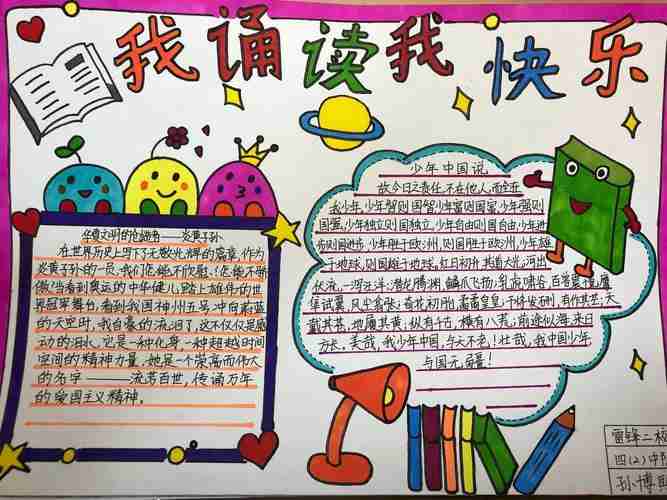 我诵读我快乐
华夏文明的——炎黄子孙
在世界历史上写下无数光辉的篇章,作为
炎黄子孙的一员,我们怎能不欣慰!怎能不骄
傲!当看到奥运的中华健儿,踏上雄伟的世
界冠军舞台,看到我国神州五号冲向蔚蓝
的天空时,我自豪的流泪了,这不仅仅是感
动的泪水,它是一种化身,一种超越时间
空间的精神力量,她是一个崇高而伟大
的名字——流芳百世,传诵万年
的爱国主义精神。
少年中国说
故今日之责任,不在他人,而全在
我少年,少年智则国智,少年富则国富,少年强则
国强,少年独立则国独立,少年自由则国自由,少年进
步则国进步,少年胜于欧洲,则国胜于欧洲,少年雄
于地球,则国雄于地球,红日初升,其道大光;河出
伏流,一泻汪洋;潜龙腾渊,鳞爪飞扬;乳虎啸谷,百兽震惶;鹰
隼试翼,风尘翕张;奇花初胎,矞矞皇皇;干将发硎,有作其芒;天
戴其苍,地履其黄;纵有千古,横有八荒;前途似海,来日
方长。美哉,我少年中国,与天不老!壮哉,我中国少年
与国无疆!
雷锋二校
四(2)中队
孙博